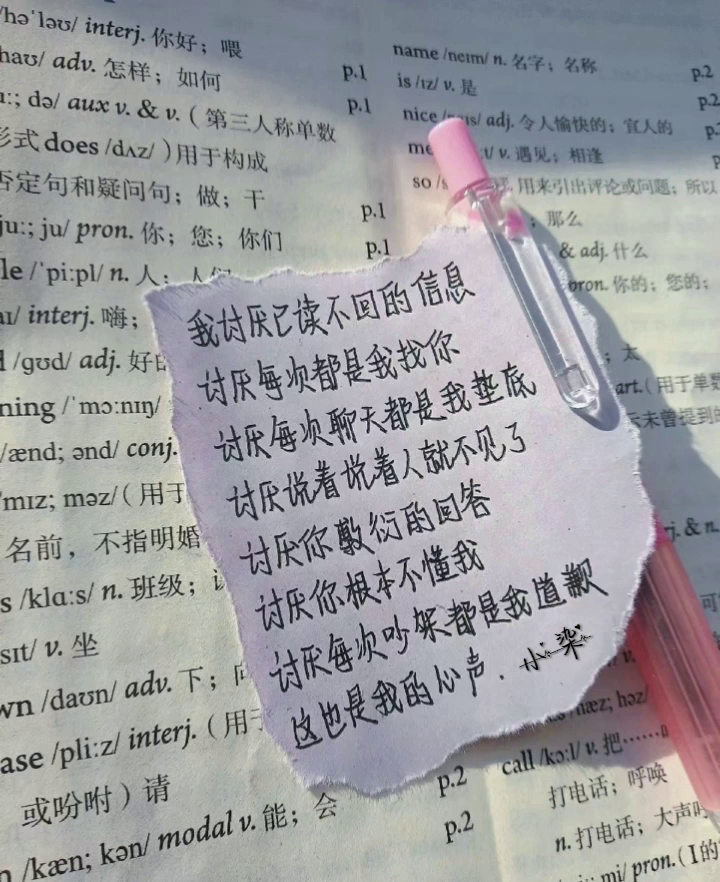 /hə'ləʊ/ interj. 你好；喂
p.1
haʊ/ adv. 怎样；如何
p.1
uː; də/ aux v. & v.（第三人称单数
形式 does /dʌz/）用于构成
否定句和疑问句；做；干
p.1
juː; ju/ pron. 你；您；你们
p.1
le /'piːpl/ n. 人；人们
aɪ/ interj. 嗨；
/ɡʊd/ adj. 好的
ning /'mɔːnɪŋ/
/ænd; ənd/ conj.
mɪz; məz/（用于
名前，不指明婚
s /klɑːs/ n. 班级；
sɪt/ v. 坐
wn /daʊn/ adv. 下；向
ase /pliːz/ interj.（用于
或吩咐）请
p.2
n /kæn; kən/ modal v. 能；会
p.2
name /neɪm/ n. 名字；名称
p.2
is /ɪz/ v. 是
p.2
nice adj. 令人愉快的；宜人的
v. 遇见；相逢
so 用来引出评论或问题；所以
；那么
& adj. 什么
pron. 你的；您的；
；太
art.（用于单数
未曾提到的
我讨厌已读不回的信息
讨厌每次都是我找你
讨厌每次聊天都是我垫底
讨厌说着说着人就不见了
讨厌你敷衍的回答
讨厌你根本不懂我
讨厌每次吵架都是我道歉
这也是我的心声．
小染
j. & n.
hæz; həz/
call /kɔːl/ v. 把……叫
打电话；呼唤
n. 打电话；大声叫
mi/ pron.（I 的